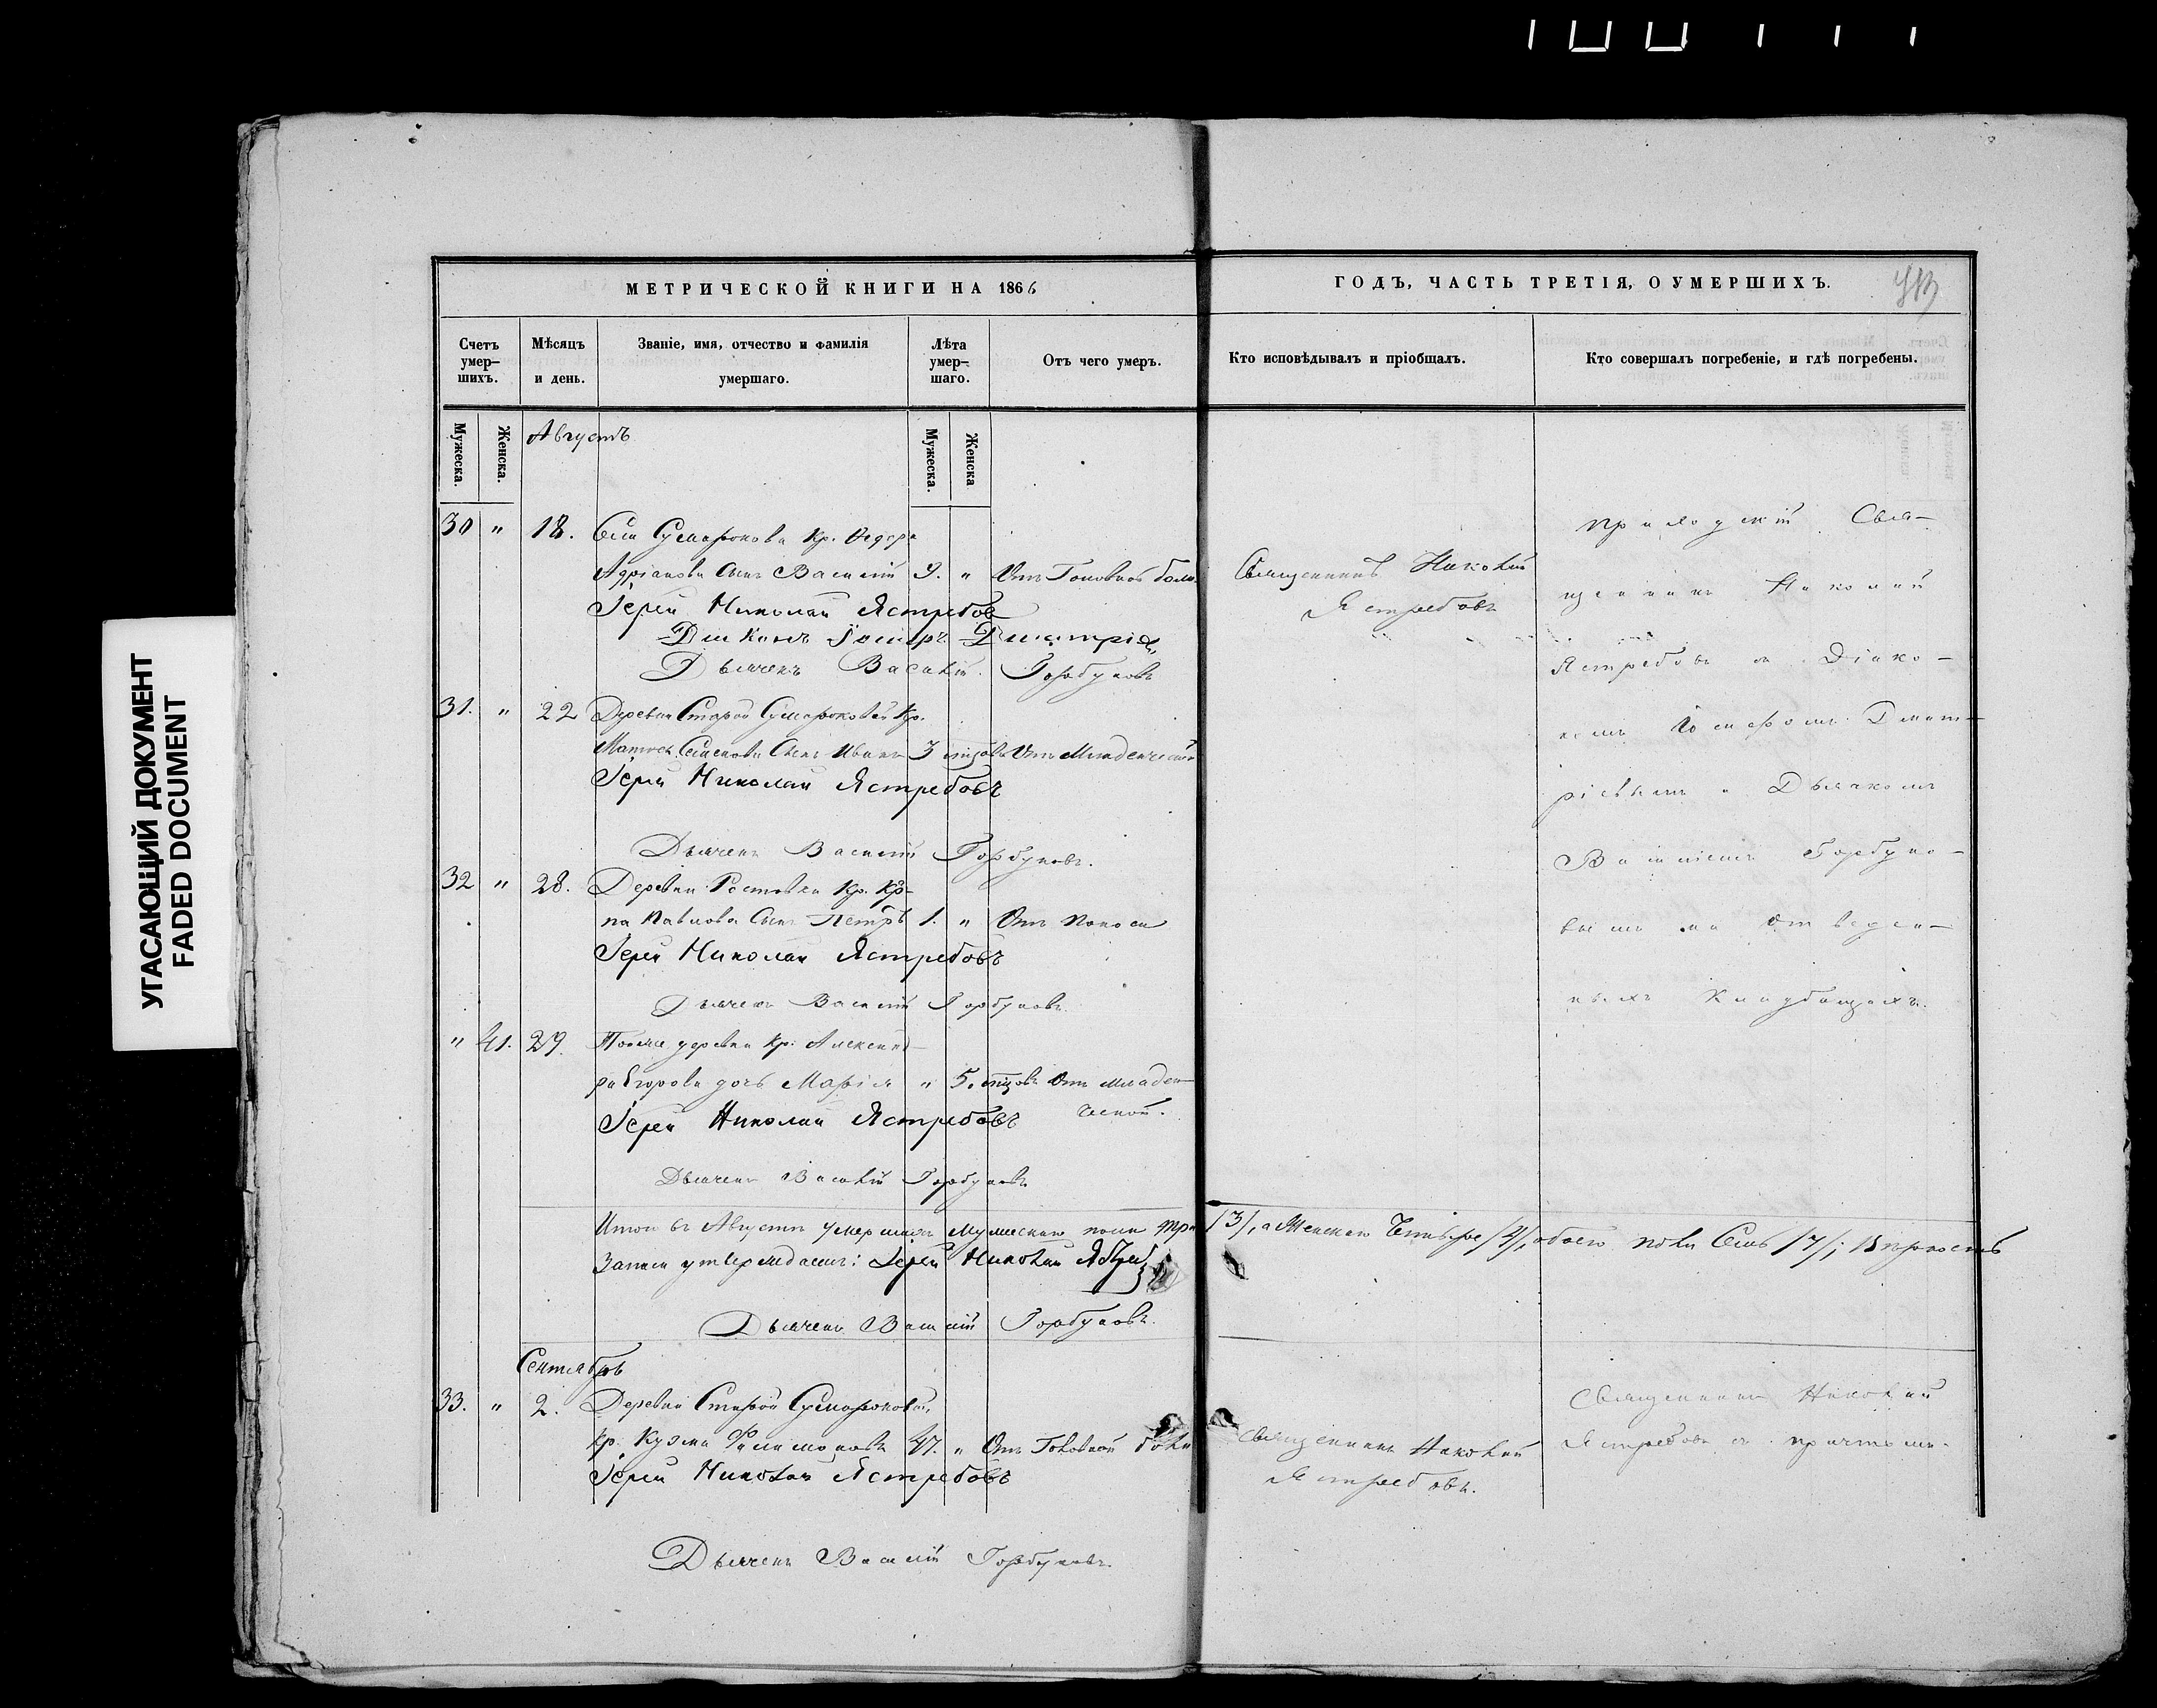 УГАСАЮЩИЙ ДОКУМЕНТ
FADED DOCUMENT
МЕТРИЧЕСКОЙ КНИГИ НА 1866
ГОДЪ, ЧАСТЬ ТРЕТІЯ, О УМЕРШИХЪ.
Счетъ умер-шихъ.
Мѣсяцъ и день.
Званіе, имя, отчество и фамилія умершаго.
Лѣта умер-шаго.
Отъ чего умеръ.
Кто исповѣдывалъ и пріобщалъ.
Кто совершалъ погребеніе, и гдѣ погребены.
Мужеска.
Женска.
Августъ
Мужеска.
Женска
30 " 18. Сумарокова Кр. Ѳедора
Адріанова Сынъ Василій 9. " Отъ Головной боли
Іерей Николай Ястребовъ
Діаконъ
Дьячекъ Василій Горбуновъ
31. " 22 Деревни Старой Сумароковой Кр.
Семенова Сынъ Иванъ 3 Отъ Младенческой
Іерей Николай Ястребовъ
Дьячекъ Василій Горбуновъ.
32 " 28. Деревни Кр.
Павлова Сынъ Петръ 1. " Отъ Поноса
Іерей Николай Ястребовъ
Дьячекъ Василій Горбуновъ.
" 41. 29. Тойже деревни Кр. Александ-
ра Егорова дочь Марія " 5. Отъ младен-
ческой.
Іерей Николай Ястребовъ
Дьячекъ Василій Горбуновъ
Священникъ Николай
Ястребовъ
приходскій Свя-
щенникъ Николай
Ястребовъ съ Діако-
номъ Дмит-
ріевымъ и Дьячкомъ
Василіемъ Горбуно-
вымъ на отведен-
ныхъ Кладбищахъ.
Итого въ Августѣ умершихъ мужескаго пола три /3/, а Женскаго Четыре /4/, обоего пола Семь /7/;
Записи утверждаемъ: Іерей Николай
Дьячекъ Василій Горбуновъ.
Сентябрь
33. " 2. Деревни Старой Сумароковой,
Кр. Кузма Филимоновъ 47. " Отъ Головной боли
Іерей Николай Ястребовъ
Дьячекъ Василій Горбуновъ.
Священникъ Николай
Ястребовъ.
Священникъ Николай
Ястребовъ съ причтомъ.